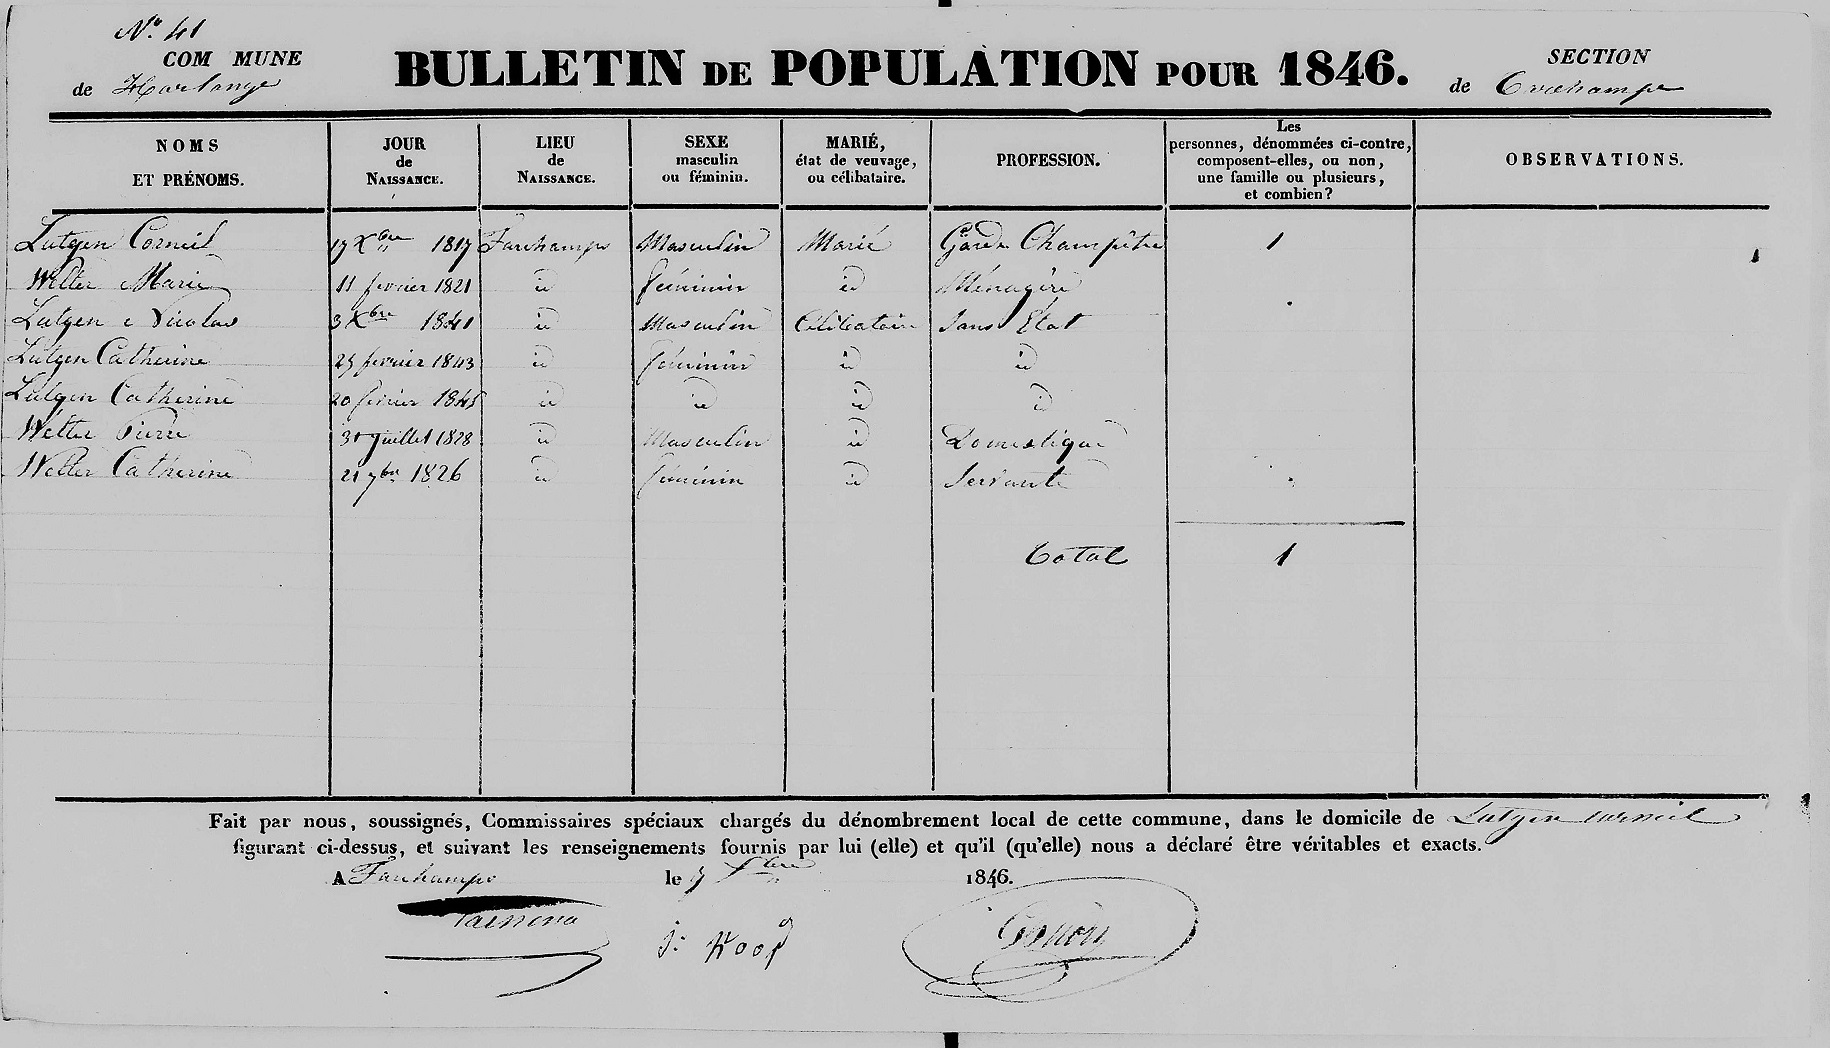 N.° 41
COMMUNE
de Harlange
BULLETIN DE POPULATION POUR 1846.
SECTION
de
NOMS ET PRÉNOMS.
JOUR de NAISSANCE.
LIEU de NAISSANCE.
SEXE masculin ou féminin.
MARIÉ, état de veuvage, ou célibataire.
PROFESSION.
Les personnes, dénommées ci-contre, composent-elles, ou non, une famille ou plusieurs, et combien?
OBSERVATIONS.
Lutgen Corneil 17 Xbre 1817 Tarchamps Masculin Marié Garde Champêtre 1
Welter Marie 11 fevrier 1821 id féminin id Ménagère
Lutgen Nicolas 3 Xbre 1841 id Masculin Célibataire Sans État
Lutgen Catherine 25 fevrier 1843 id féminin id id
Lutgen Catherine 20 fevrier 1845 id id id id
Welter Pierre 31 Juillet 1828 id Masculin id Domestique
Welter Catherine 21 7bre 1826 id féminin id Servante
Total 1
Fait par nous, soussignés, Commissaires spéciaux chargés du dénombrement local de cette commune, dans le domicile de Lutgen Corneil
figurant ci-dessus, et suivant les renseignements fournis par lui (elle) et qu'il (qu'elle) nous a déclaré être véritables et exacts.
A Tarchamps le 1846.